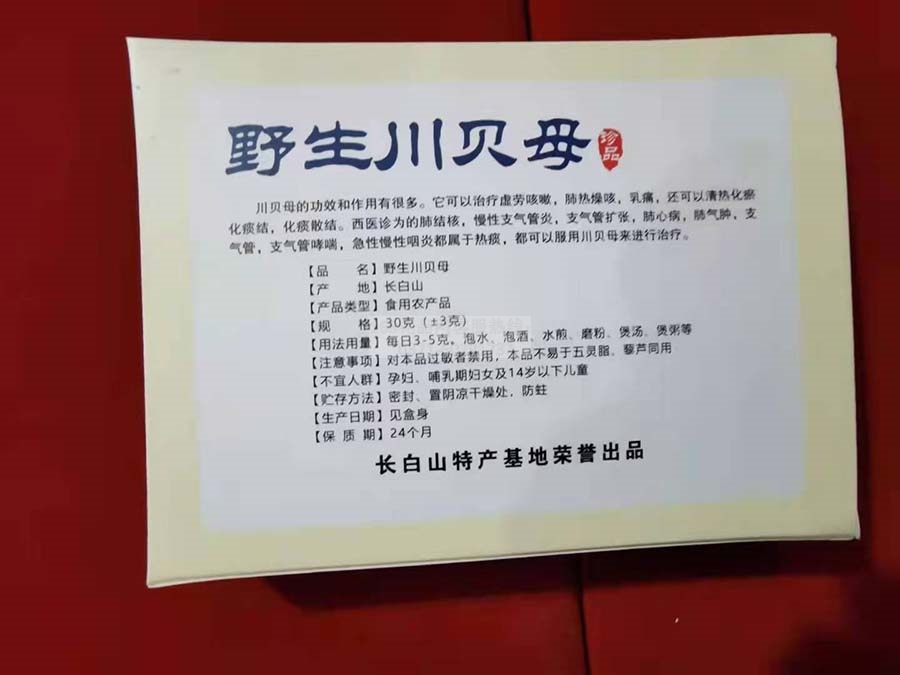 野生川贝母 珍品
川贝母的功效和作用有很多。它可以治疗虚劳咳嗽，肺热燥咳，乳痛，还可以清热化瘀
化痰结，化痰散结。西医诊为的肺结核，慢性支气管炎，支气管扩张，肺心病，肺气肿，支
气管，支气管哮喘，急性慢性咽炎都属于热痰，都可以服用川贝母来进行治疗。
【品 名】野生川贝母
【产 地】长白山
【产品类型】食用农产品
【规 格】30克（±3克）
【用法用量】每日3-5克。泡水、泡酒、水煎、磨粉、煲汤、煲粥等
【注意事项】对本品过敏者禁用，本品不易于五灵脂、藜芦同用
【不宜人群】孕妇、哺乳期妇女及14岁以下儿童
【贮存方法】密封、置阴凉干燥处，防蛀
【生产日期】见盒身
【保 质 期】24个月
长白山特产基地荣誉出品